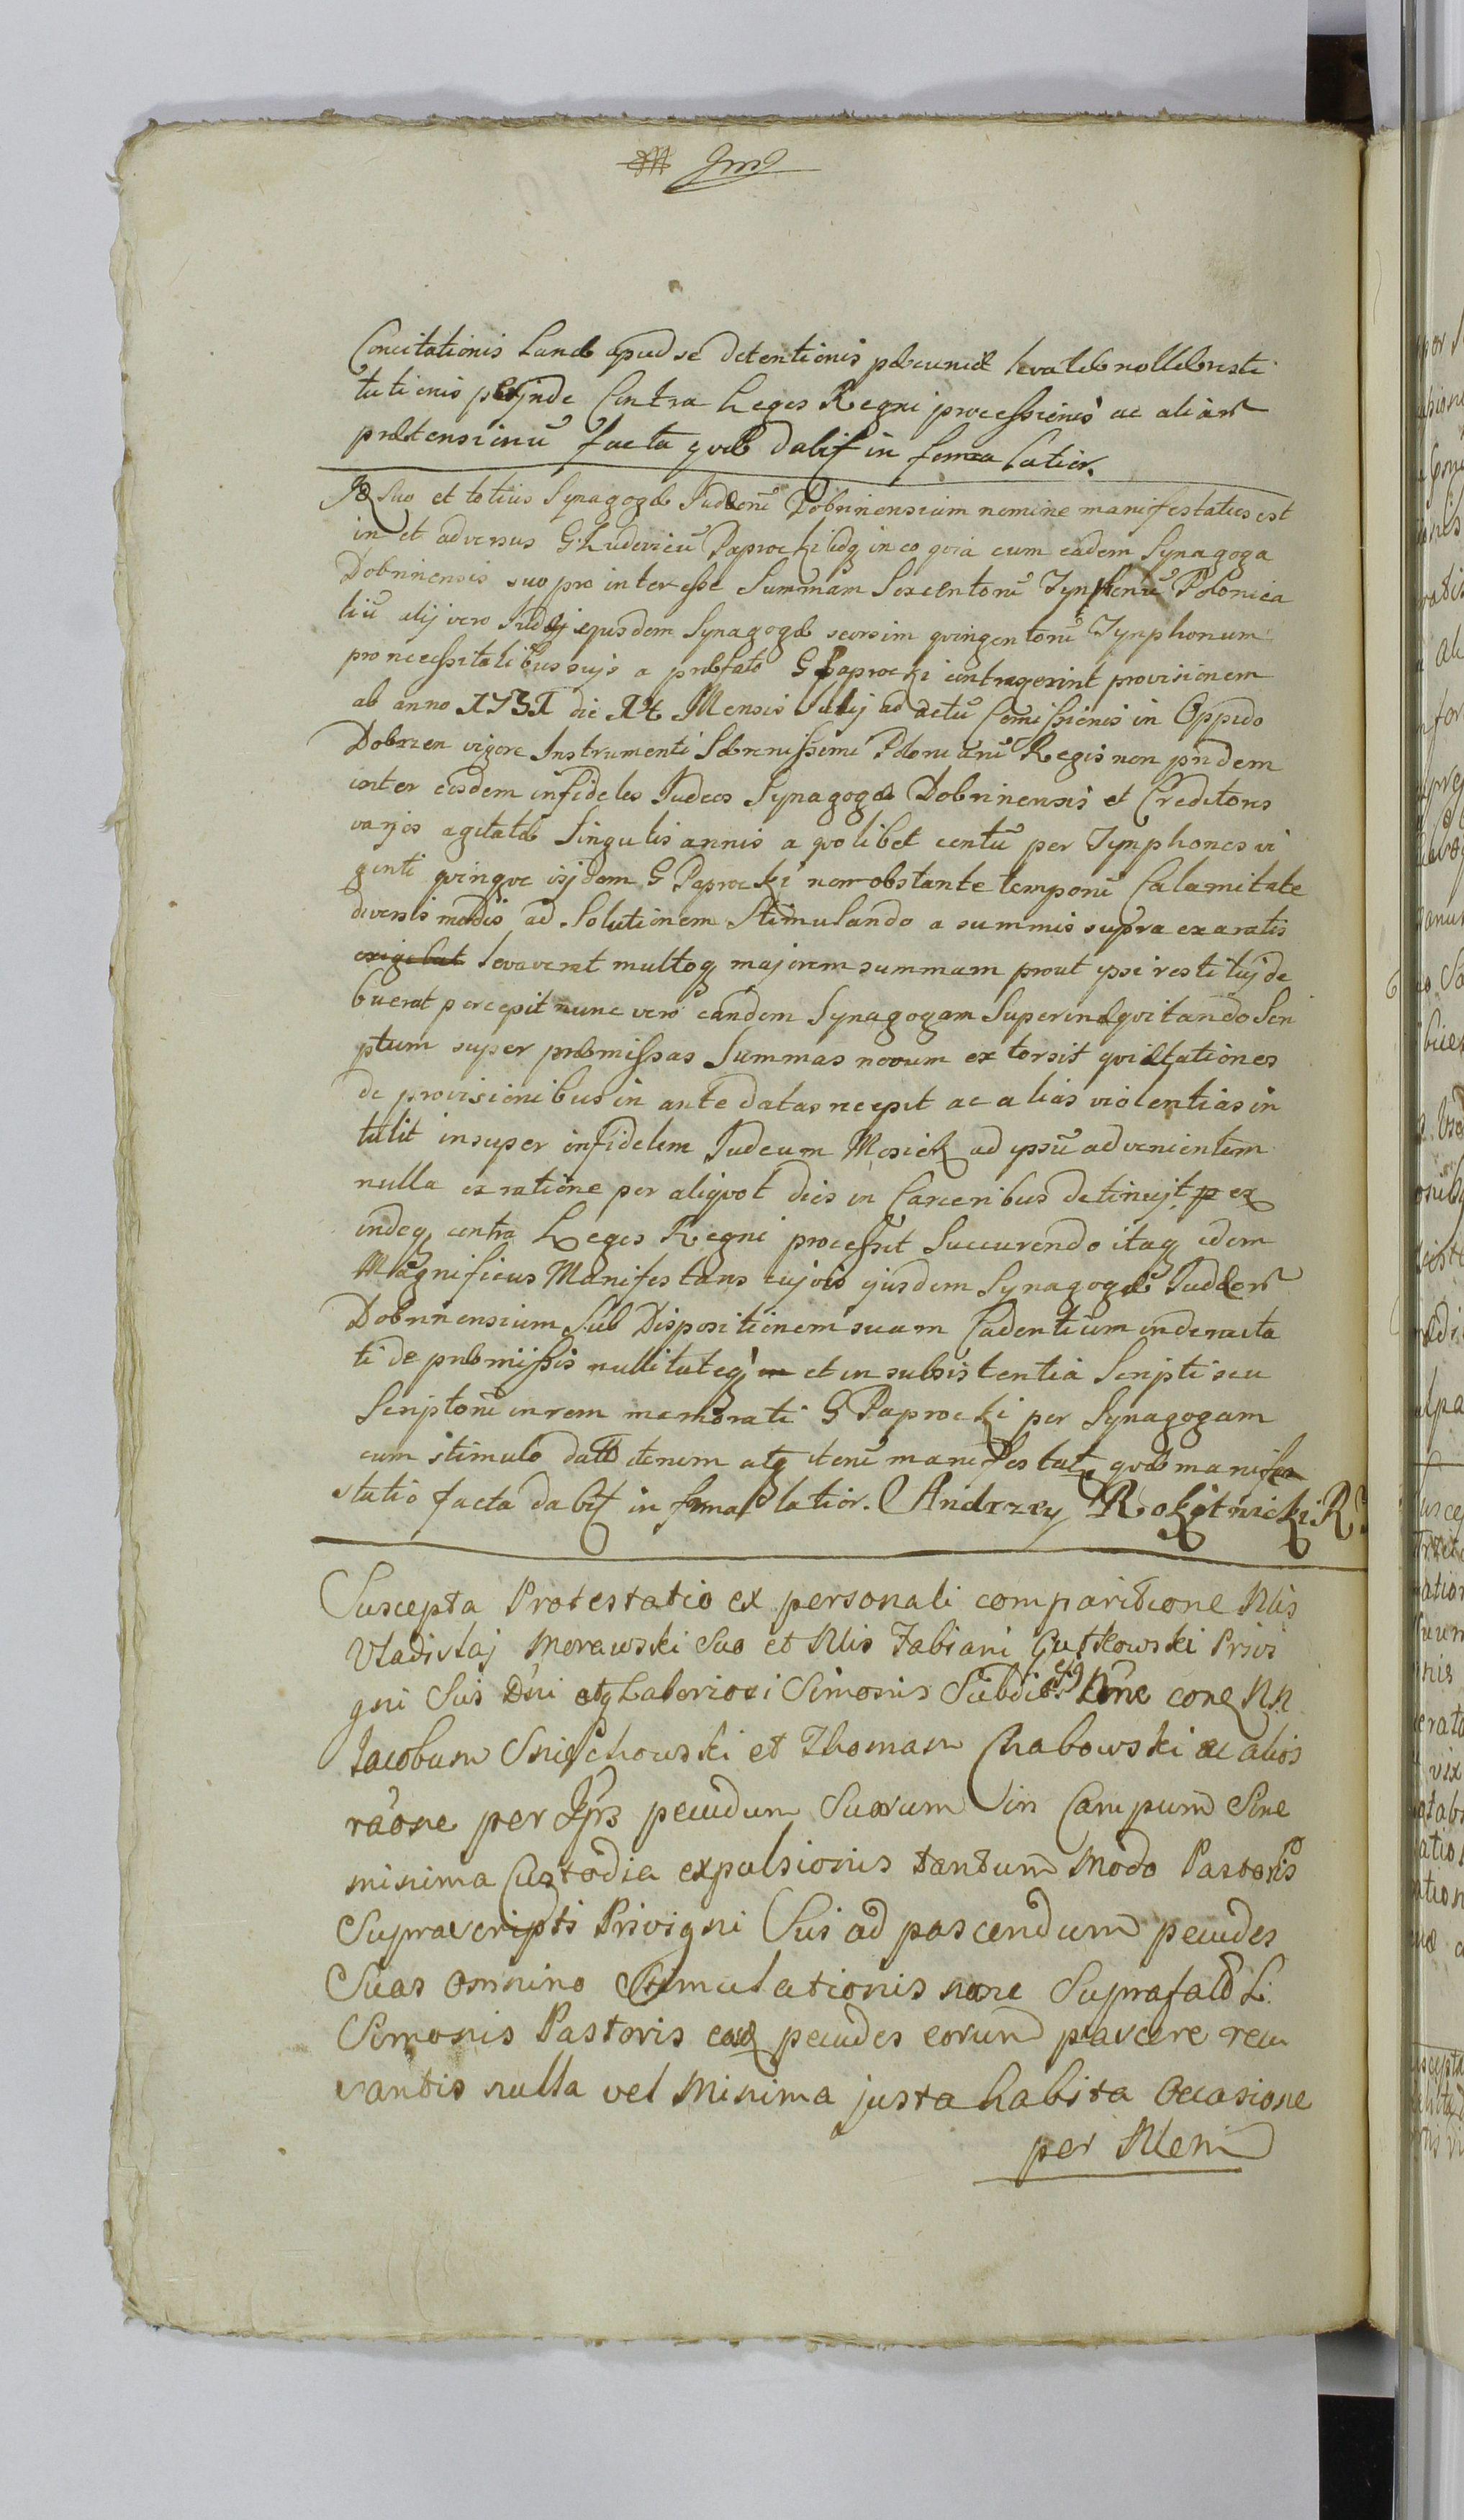 Concitationis Lanæ apud se detentionis pæcuniæ levatæ nollæ resti
tutionis perjnde Contra Leges Regni processionis ac aliar
prætensionũ facta quæ dabit in forma latior.
Suo et totius Synagogæ Judæorũ Dobrinensium nomine manifestatus est
in et adversus G. Ludovicũ Paprocki idq in eo quia cum eadem Synagoga
Dobrinensis suo pro interesse Summam Sexcentorũ Tynphonũ Polonica
liũ alij vero Judæj ejusdem Synagogæ seorsim quingentorũ Tynphonum
pro necessitatibus sujs a præfato G Paprocki contraxerint provisionem
ab anno 1731 die Mensis Julij ad actũ Comissionis in Oppido
Dobrzen vigore Instrumenti Serenissimi Poloniarũ Regis non pridem
inter eosdem infideles Judeos Synagogæ Dobrinensis et Creditores
varjos agitatæ Singulis annis a quolibet centũ per Tymphones vi
ginti quinque ijsdem G Paprocki non obstante temporũ Calamitate
diversis modis ad Solutionem Stimulando a summis supra exaratis
exigebat levaverat multoq majorem summam prout ipsi restituj de
buerat percepit nunc vero eandem Synagogam Superinequitando Scri
ptum super præmissas Summas novum extorsit quittationes
de provisionibus in ante datas recepit ac alias violentias in
tulit insuper infidelem Judeum Mosiek ad ipsũ advenientem
nulla ex ratione per aliquot dies in Carceribus detinujt
indeq contra Leges Regni processit Succurendo itaq idem
Magnificus Manifestans cujvis ejusdem Synagogæ Judæor
Dobrinensium Sub Dispositionem suam Cadentium indemnita
ti de præmissis nullitateq et in subsistentia Scripti seu
Scriptorũ in rem memorati G Paprocki per Synagogam
cum stimulo dati iterum atq iterũ manifestat quæ manife
statio facta dabit in forma latior. Andrzey Rokitnicki
Suscepta Protestatio ex personali comparitione Nlis
Vladislaj Morawski Suo et Nlis Fabiani Gutkowski Privi
gni Sui Dni atq Laboriosi Simonis Subditi ejg Nõne cora NN
Jacobum Sniechowski et Thomam Chabowski ac alios
raõne per Ipsos pecudum Suarum in Campum Sine
minima Custodia expulsionis tantum Modo Pastoris
Suprascripti Privigni Sui ad pascendum pecudes
Suas omnino Stimulationis nunc Suprafati L.
Simonis Pastoris easq pecudes eorum pascere recu
santis nulla vel Minima justa habita Occasione
per Nlem